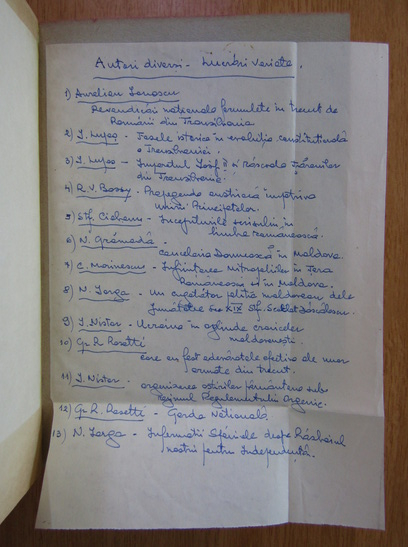 Autori diverși - Lucrări variate.
1) Aurelian Ionescu
Revendicări naționale formulate în trecut de
Românii din Transilvania
2) I. Lupaș - Fazele istorice în evoluția constituțională
a Transilvaniei.
3) I. Lupaș - Împăratul Iosif II și răscoala țăranilor
din Transilvania.
4) R. V. Bossy - Propaganda austriacă împotriva
unirii Principatelor
5) Ștf. Ciobanu - Începuturile scrisului în
limba românească.
6) N. Grămadă -
cancelaria Domnească în Moldova
7) C. Marinescu - Înființarea Mitropoliilor în Țara
Românească și în Moldova.
8) N. Iorga - Un cugetător politic moldovean dela
jumătatea sec XIX Ștf. Scarlat Dăscălescu.
9) I. Nistor - Ucraina în oglinda cronicelor
moldovenești.
10) Gr R. Rosetti
care au fost adevăratele efective ale unor
armate din trecut.
11) I. Nistor -
organizarea oștirilor pământene sub
regimul Regulamentului Organic.
12) Gr. R. Rosetti - Garda Națională
13) N. Iorga - Informații Spaniole despre Războiul
nostru pentru Independență.